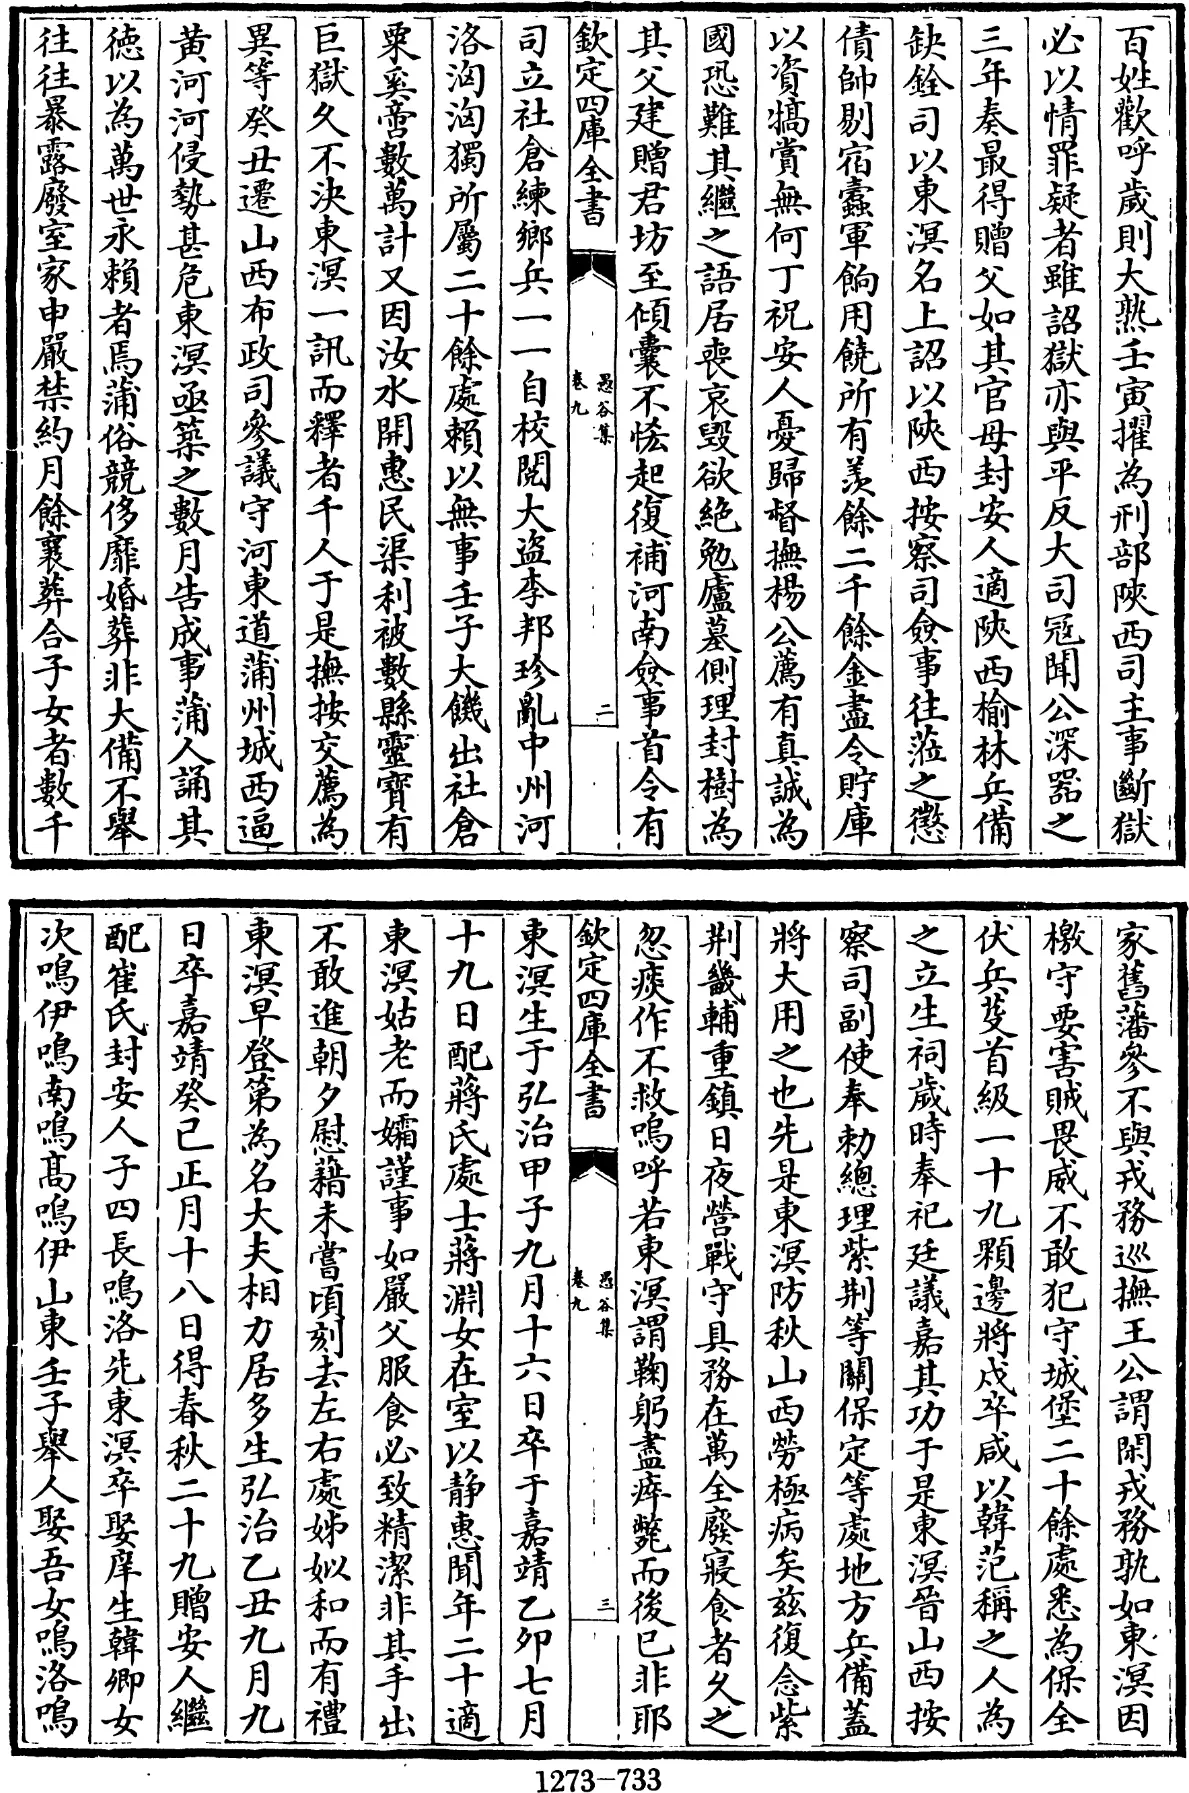 百姓歡呼歲則大熟壬寅擢為刑部陜西司主事斷獄
必以情罪疑者雖詔獄亦與平反大司冦聞公深器之
三年奏最得贈父如其官母封安人適陜西榆林兵備
缺銓司以東溟名上詔以陜西按察司僉事往蒞之懲
債帥剔宿蠹軍餉用饒所有羨餘二千餘金盡令貯庫
以資犒賞無何丁祝安人憂歸督撫楊公薦有真誠為
國恐難其繼之語居喪哀毀欲絶勉廬墓側理封樹為
其父建贈君坊至傾囊不恡起復補河南僉事首令有
欽定四庫全書
愚谷集
卷九
二
司立社倉練鄉兵一一自校閱大盜李邦珍亂中州河
洛洶洶獨所屬二十餘處賴以無事壬子大饑出社倉
粟奚啻數萬計又因汝水開惠民渠利被數縣靈寶有
巨獄久不決東溟一訊而釋者千人于是撫按交薦為
異等癸丑遷山西布政司參議守河東道蒲州城西逼
黄河河侵勢甚危東溟亟築之數月告成事蒲人誦其
徳以為萬世永賴者焉蒲俗競侈靡婚葬非大備不舉
往往暴露廢室家申嚴禁約月餘襄葬合子女者數千
家舊藩參不與戎務巡撫王公謂閑戎務孰如東溟因
檄守要害賊畏威不敢犯守城堡二十餘處悉為保全
伏兵芟首級一十九顆邊將戍卒咸以韓范稱之人為
之立生祠歲時奉祀廷議嘉其功于是東溟晉山西按
察司副使奉勅總理紫荆等關保定等處地方兵備蓋
將大用之也先是東溟防秋山西勞極病矣兹復念紫
荆畿輔重鎮日夜營戰守具務在萬全廢寢食者久之
忽痰作不救嗚呼若東溟謂鞠躬盡瘁斃而後已非耶
欽定四庫全書
愚谷集
卷九
三
東溟生于弘治甲子九月十六日卒于嘉靖乙卯七月
十九日配蔣氏處士蔣淵女在室以静惠聞年二十適
東溟姑老而孀謹事如嚴父服食必致精潔非其手出
不敢進朝夕慰藉未嘗頃刻去左右處姊姒和而有禮
東溟早登第為名大夫相力居多生弘治乙丑九月九
日卒嘉靖癸巳正月十八日得春秋二十九贈安人繼
配崔氏封安人子四長鳴洛先東溟卒娶庠生韓卿女
次鳴伊鳴南鳴髙鳴伊山東壬子舉人娶吾女鳴洛鳴
1273-733